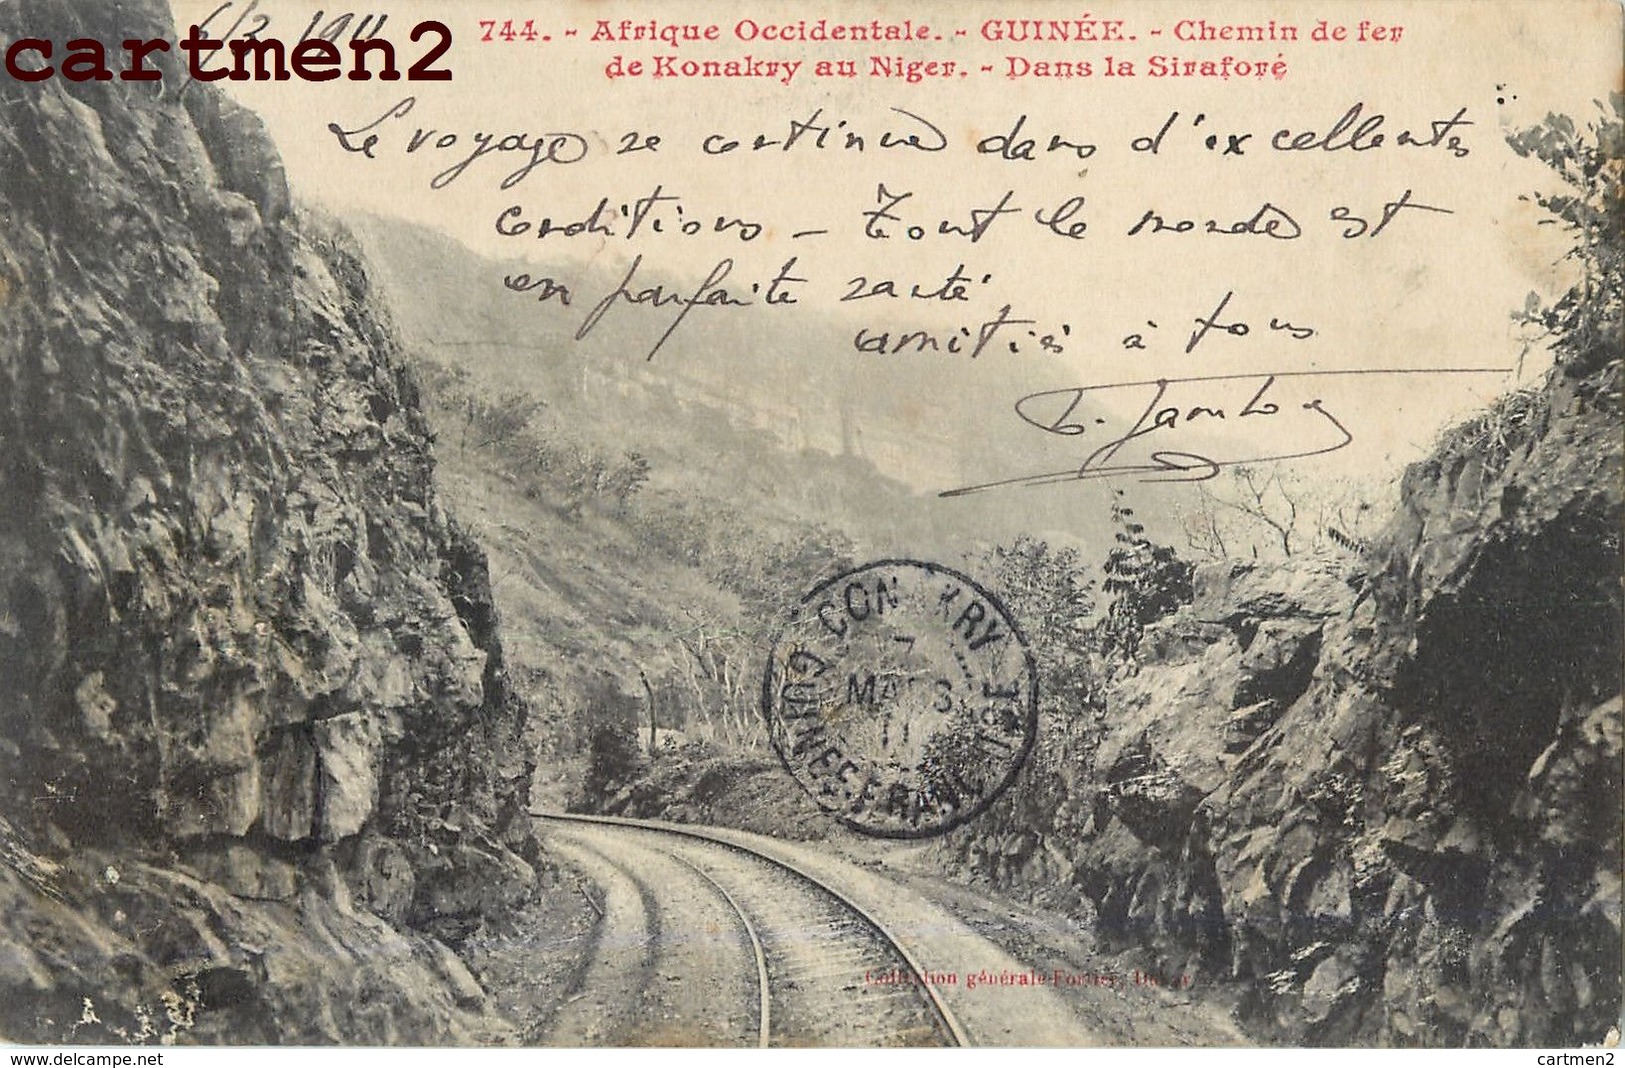 6/3 1911
cartmen2
744. - Afrique Occidentale. - GUINÉE. - Chemin de fer
de Konakry au Niger. - Dans la Siraforé
Le voyage se continue dans d'excellentes
conditions - Tout le monde est
en parfaite santé
amitiés à tous
CONAKRY
7
MARS
11
GUINÉE FRANÇ
Collection générale Fortier, Dakar
www.delcampe.net
cartmen2